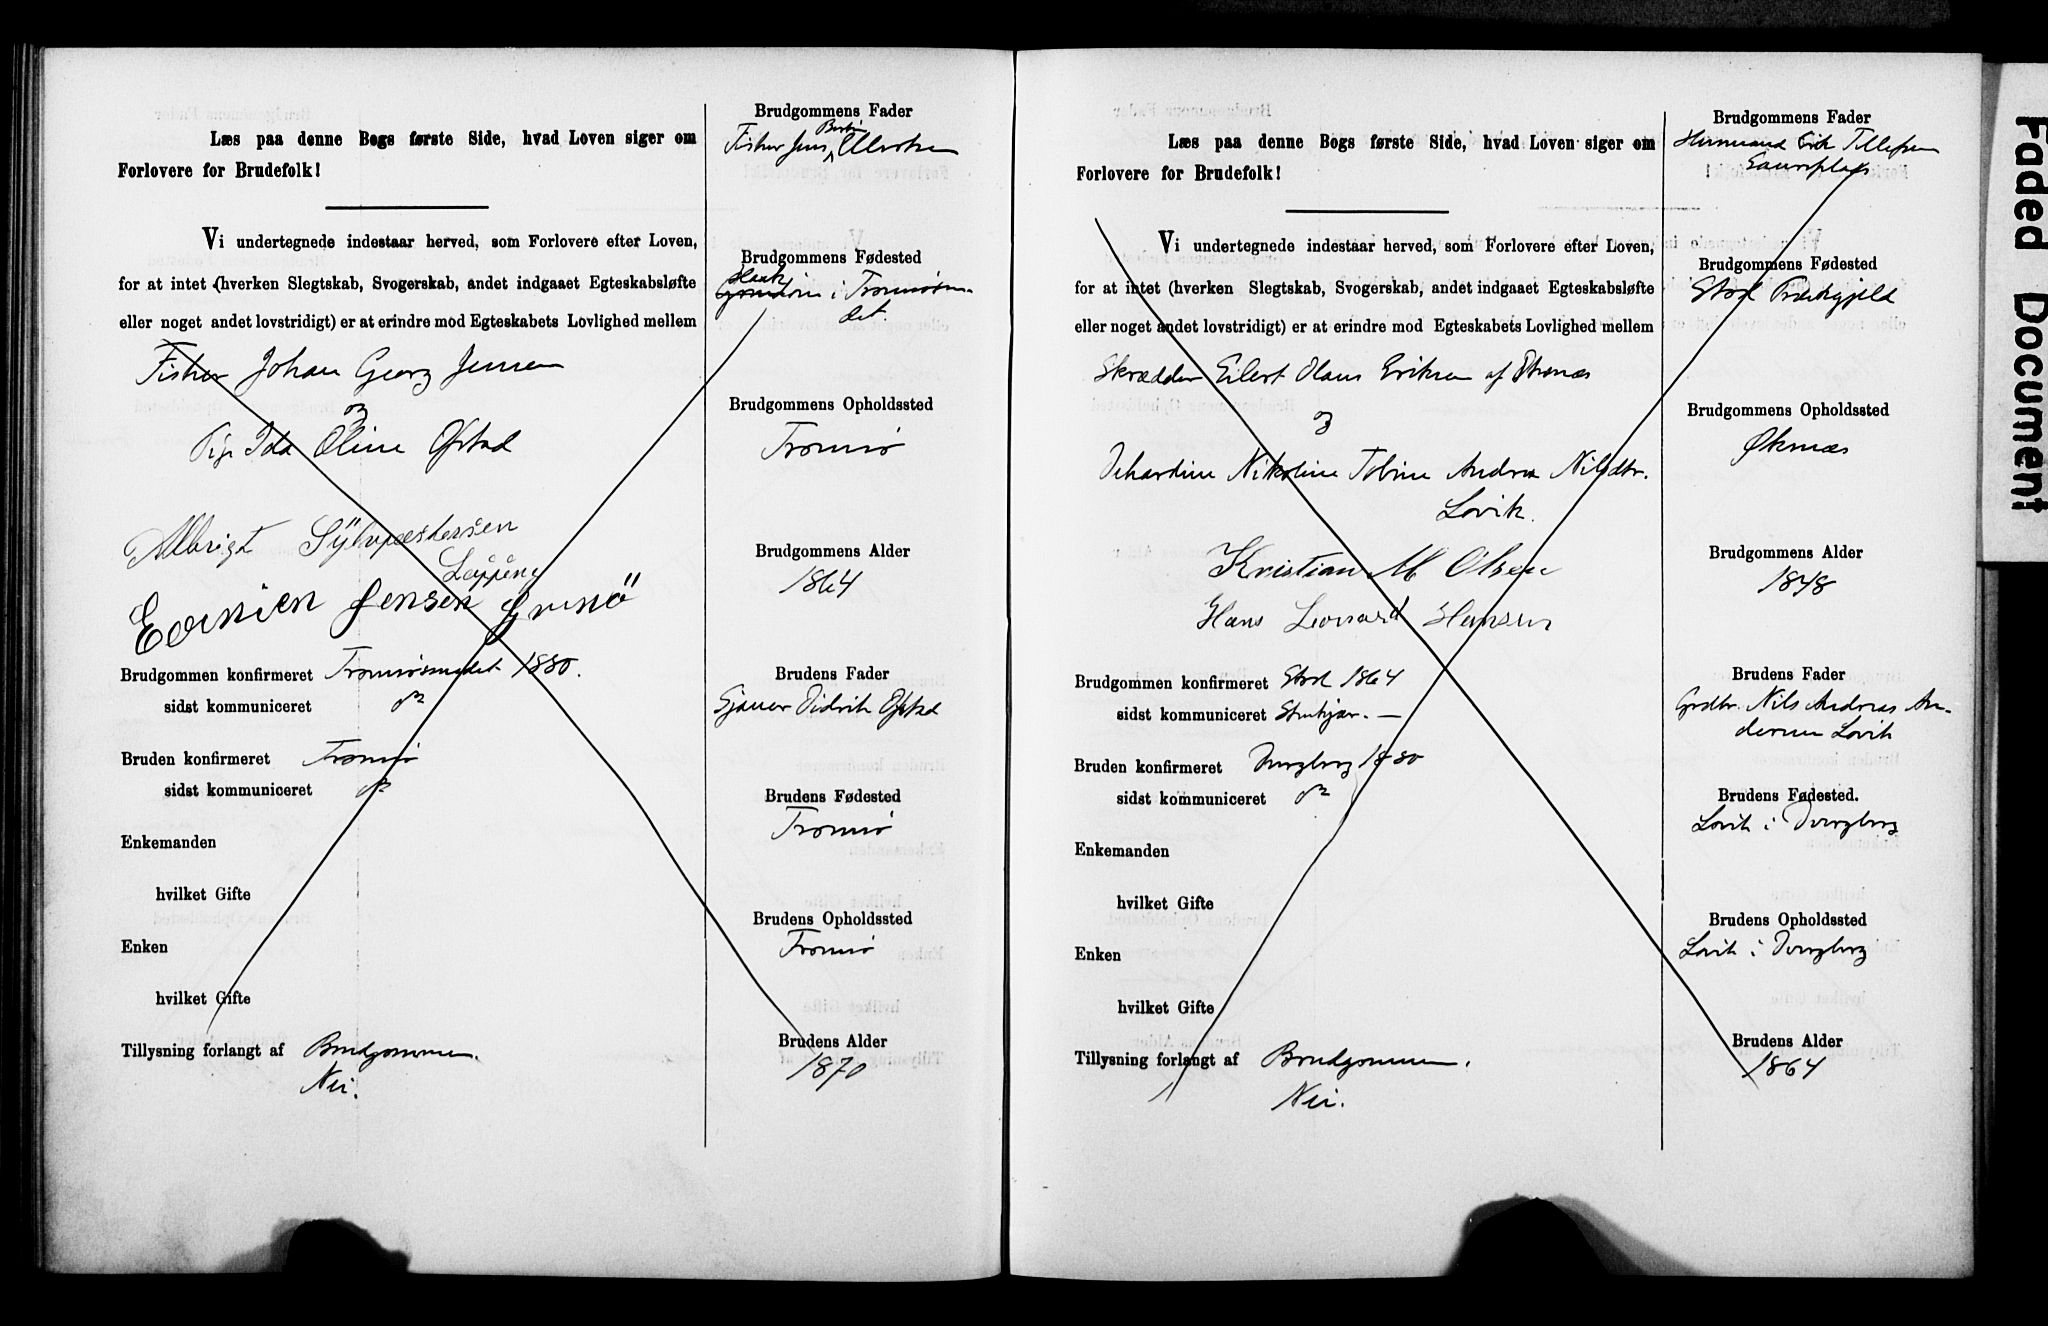 Læs paa denne Bogs første Side, hvad Loven siger om
Forlovere for Brudefolk!
Vi undertegnede indestaar herved, som Forlovere efter Loven,
for at intet (hverken Slegtskab, Svogerskab, andet indgaaet Egteskabsløfte
eller noget andet lovstridigt) er at erindre mod Egteskabets Lovlighed mellem
Fisker Johan Georg Jensen
og
Pige Ida Oline Ofstad
Albrigt Sylvvestersen
Edvnien Jensen
Brudgommen konfirmeret Tromsøsundet 1880.
sidst kommuniceret do
Bruden konfirmeret Tromsø
sidst kommuniceret do
Enkemanden
hvilket Gifte
Enken
hvilket Gifte
Tillysning forlangt af Brudgommen.
Nei.
Brudgommens Fader
Fisker Jens
Brudgommens Fødested
i Tromsøsun-
det.
Brudgommens Opholdssted
Tromsø
Brudgommens Alder
1864
Brudens Fader
Sjauer Didrik Ofstad
Brudens Fødested
Tromsø
Brudens Opholdssted
Tromsø
Brudens Alder
1870
Læs paa denne Bogs første Side, hvad Loven siger om
Forlovere for Brudefolk!
Vi undertegnede indestaar herved, som Forlovere efter Loven,
for at intet (hverken Slegtskab, Svogerskab, andet indgaaet Egteskabsløfte
eller noget andet lovstridigt) er at erindre mod Egteskabets Lovlighed mellem
Skrædder Eilert Olaus Eriksen af Øksnæs
og
Nikoline Tobine Andrea Nilsdtr.
Lovik.
Kristian M Olsen
Hans Leonard Hansen
Brudgommen konfirmeret Stod 1864
sidst kommuniceret Stenkjær. —
Bruden konfirmeret Dverberg 1880
sidst kommuniceret do
Enkemanden
hvilket Gifte
Enken
hvilket Gifte
Tillysning forlangt af Brudgommen.
Nei.
Brudgommens Fader
Husmand Erik Tillefsen
Brudgommens Fødested
Stod Præstegjeld
Brudgommens Opholdssted
Øksnæs
Brudgommens Alder
1848
Brudens Fader
Grdbr. Nils Andreas An-
dersen Lovik
Brudens Fødested.
Lovik i Dverberg
Brudens Opholdssted
Lovik i Dverberg
Brudens Alder
1864
Faded Document